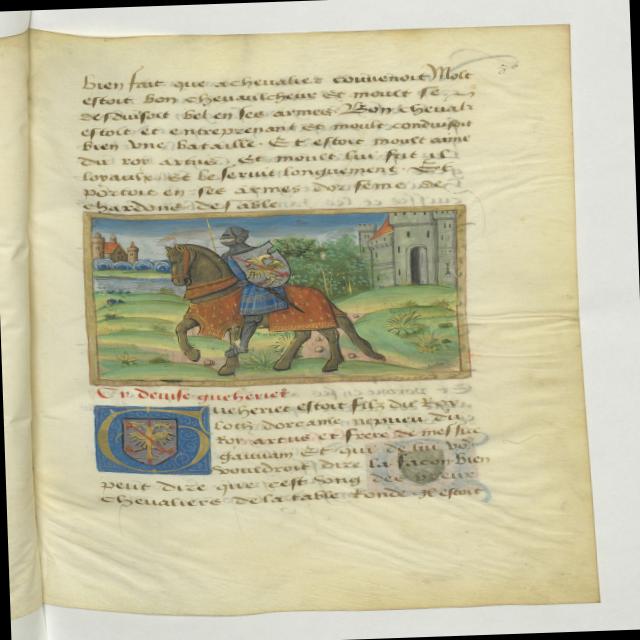 bien frait que a chevalier convenoit Molt
estoit bon chevaulcheur et moult se
desduisoit bel en ses armes Bon chevali
estoit et entreprenant et moult conduisoit
bien une bataille Et estoit moult ame
du roy artus Et moult lui fut il
loyaulx et le servit longuement Et
portoit en ses armes dor seme de
chardons de sable
Cy devise gueheriet
Gueheriet estoit filz du Roy
Loth dorcanie nepueu du
Roy artus et frere de messire
gauvain Et qui
vouldroit dire la facon bien
peut dire que cest ung des
chevaliers de la table Ronde Il estoit